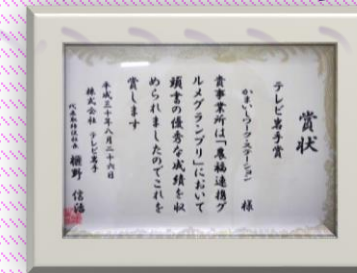 賞状
テレビ岩手賞
かまいしワークステーション 様
貴事業所は「農福連携グ
ルメグランプリ」において
頭書の優秀な成績を収
められましたのでこれを
賞します
平成三十年八月二十六日
株式会社 テレビ岩手
代表取締役社長 榧野 信治